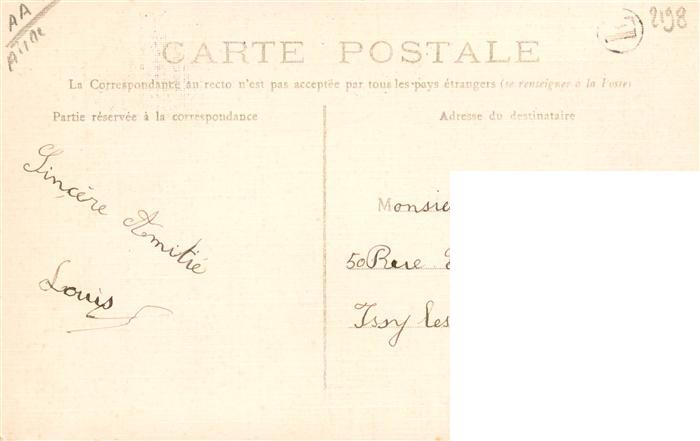 AA
Aisne
2198
CARTE POSTALE
La Correspondance au recto n'est pas acceptée par tous les pays étrangers (se renseigner à la Poste)
Partie réservée à la correspondance
Adresse du destinataire
Sincère Amitié
Louis
Monsie
50 Rue
Issy les